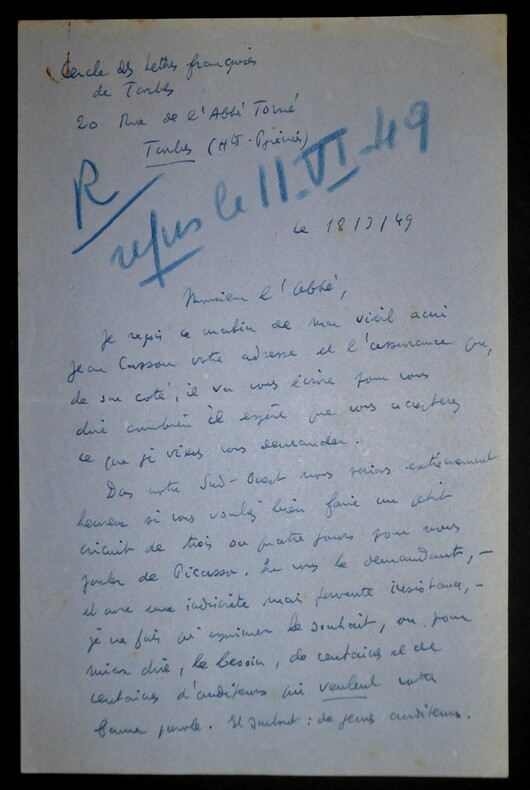 Cercle des Lettres françaises
de Tarbes
20 Rue de l'Abbé Torné
Tarbes (Htes-Pyrénées)
R
reçu le 11.VI.49
le 18/3/49
Monsieur l'Abbé,
Je reçois ce matin de mon vieil ami
Jean Cassou votre adresse et l'assurance que,
de son côté, il va vous écrire pour vous
dire combien il espère que vous accepterez
ce que je viens vous demander.
Dans notre Sud-Ouest nous serions extrêmement
heureux si vous vouliez bien faire un petit
circuit de trois ou quatre jours pour nous
parler de Picasso. En vous le demandant, –
et avec une indiscrète mais fervente insistance, –
je ne fais qu'exprimer le souhait, ou pour
mieux dire, le besoin, de centaines et de
centaines d'auditeurs qui veulent votre
bonne parole. Et surtout : de jeunes auditeurs.